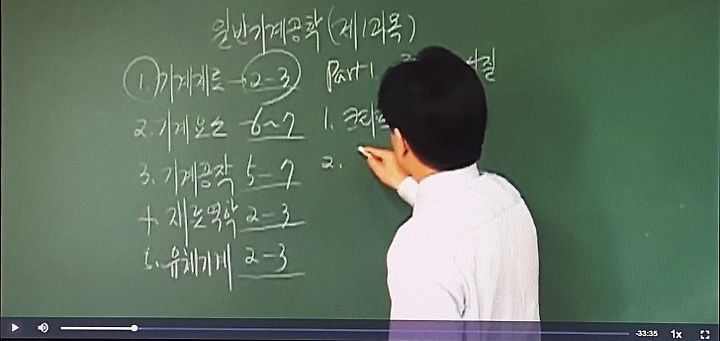 일반기계공학 (제1과목)
1. 기계재료 → 2-3
2. 기계요소 6~7
3. 기계공작 5-7
4. 재료역학 2-3
5. 유체기계 2-3
Part 1 성질
1. 크리프
2.
-33:35 1x